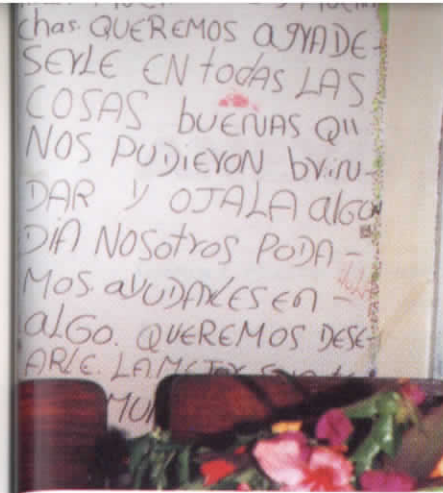 chas. QUEREMOS AGRADE-
SERLE EN todAS LAS
COSAS buENAS QU
NOS PUDIERON briN-
DAR Y OJALA alGUN
DIA NOSOtrOS PODA-
MOS aYUDARLES EN
alGO. QUEREMOS DESE-
ARLE. LA MEJOR
MUN